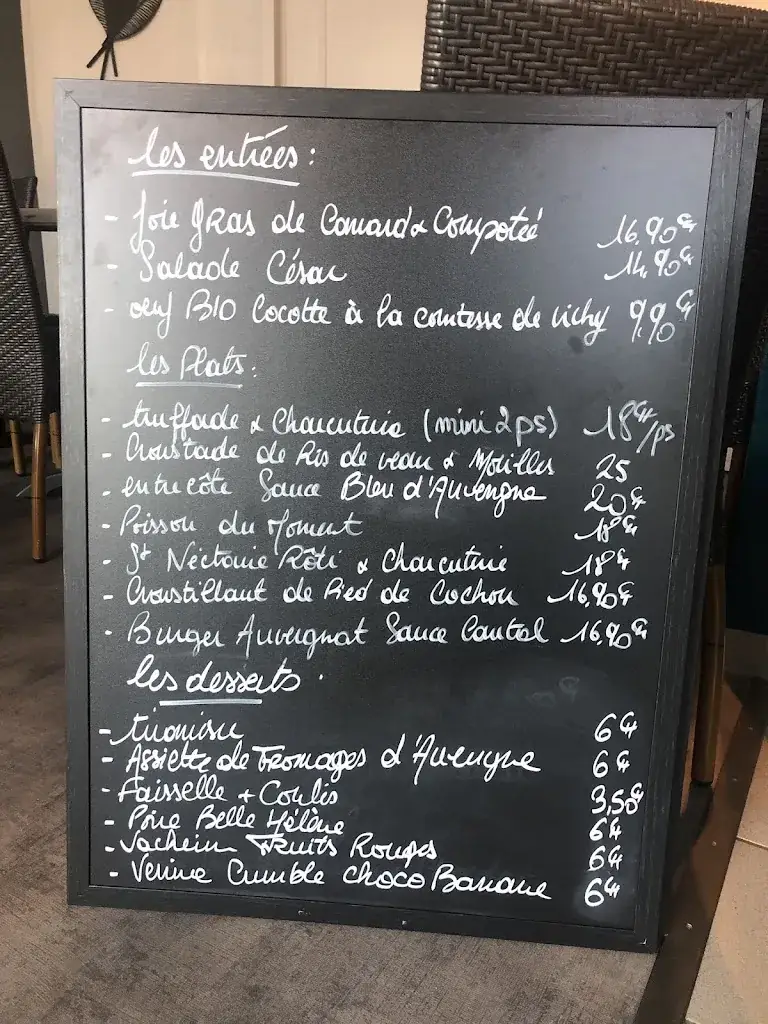 les entrées :
- foie gras de Canard & Compotée 16,90€
- Salade César 14,90€
- oeuf BIO Cocotte à la comtesse de vichy 9,90€
les Plats :
- truffade & Charcuterie (mini 2ps) 18€/ps
- Croustade de Ris de veau & Morilles 25
- entrecôte Sauce Bleu d'Auvergne 20€
- Poisson du Moment 18€
- St Nectaire Rôti & Charcuterie 18€
- Croustillant de Pied de Cochon 16,90€
- Burger Auvergnat Sauce Cantal 16,90€
les desserts .
- tiramisu 6€
- Assiette de Fromages d'Auvergne 6€
- Faisselle + Coulis 3,50€
- Poire Belle Hélène 6€
- Vacherin Fruits Rouges 6€
- Verrine Crumble choco Banane 6€